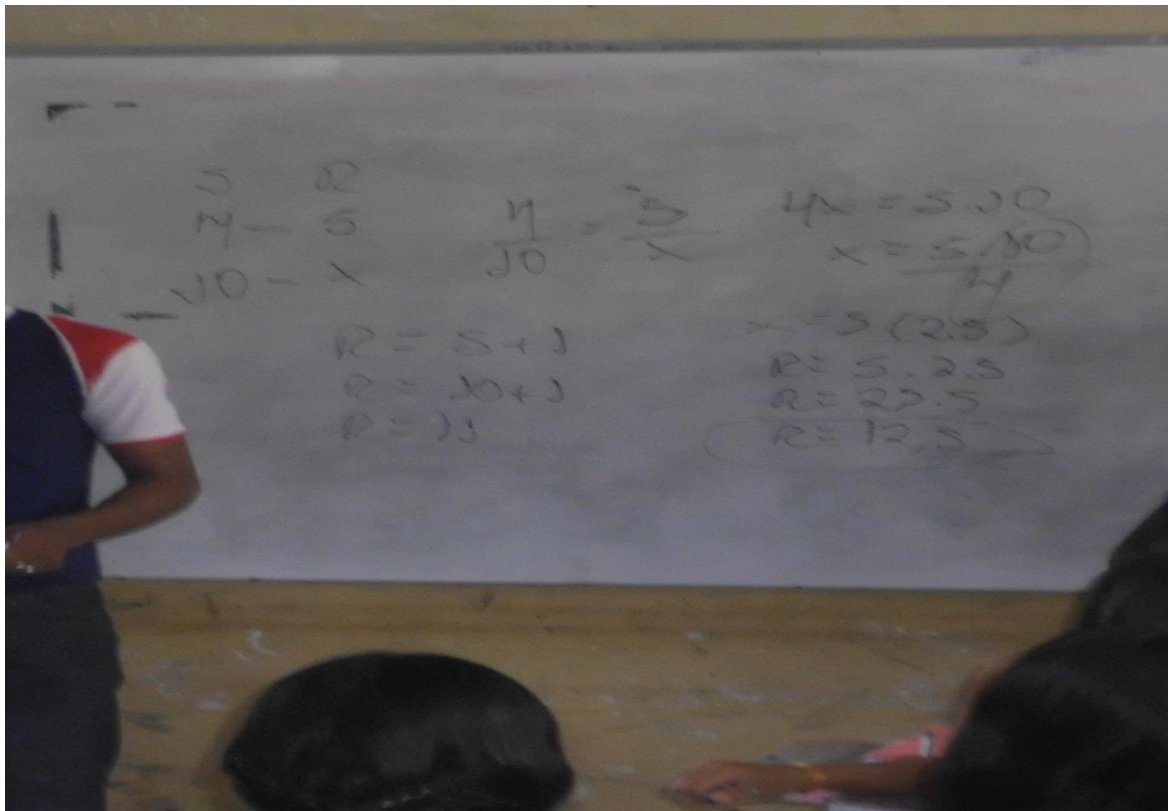 S R
4 – 5
10 – x
4/10 = 5/x
4x = 5.10
x = 5.10/4
x = 5 (2.5)
R = 5 . 2.5
R = 12.5
R = S + 1
R = 10 + 1
R = 11